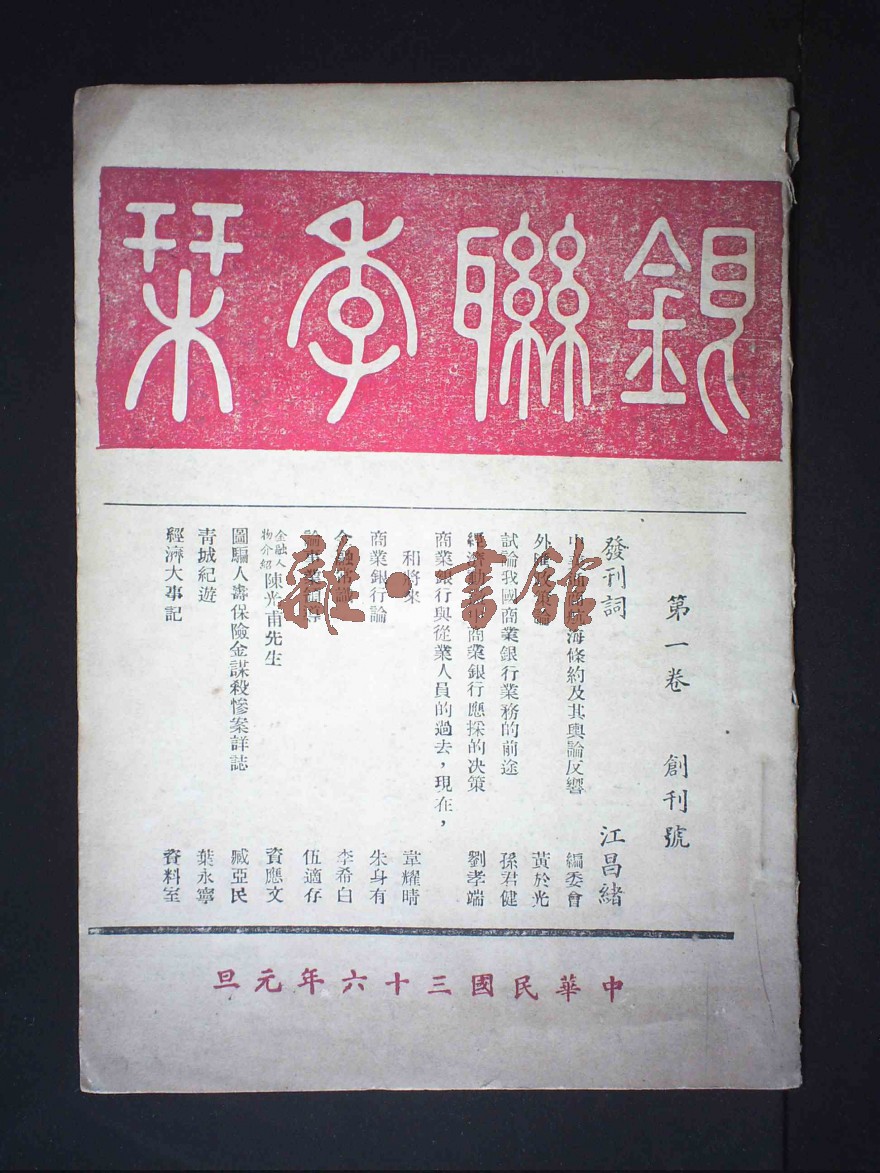 銀聯季栞
第一卷 創刊號
發刊詞 江昌緒
航海條約及其輿論反響 編委會
外匯 論 黃於光
試論我國商業銀行業務的前途 孫君健
經濟 商業銀行應採的决策 劉孝端
商業銀行與從業人員的過去，現在，
和將來 韋耀晴
商業銀行論 朱身有
金融 李希白
論 業 伍適存
金融人物介紹 陳光甫先生 資應文
圖騙人壽保險金謀殺慘案詳誌 臧亞民
青城紀遊 葉永寧
經濟大事記 資料室
中華民國三十六年元旦
雜·書館